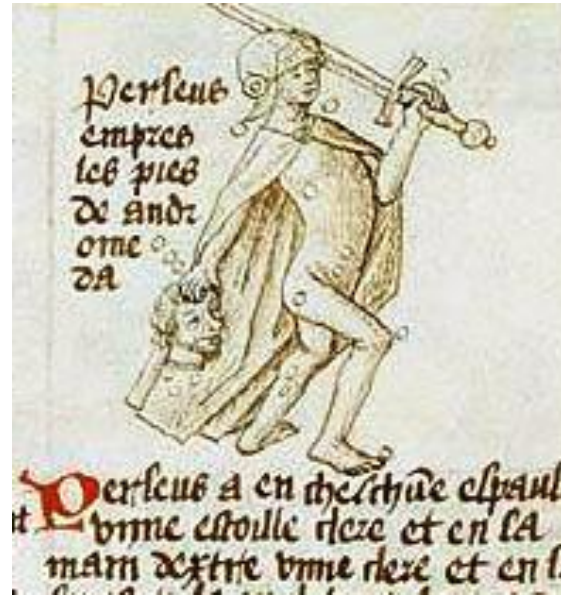 Perseus
empres
les pies
de andr
ome
da
Perseus a en cheschũe espaul
vnne estoille clere et en la
main dextre vnne clere et en l